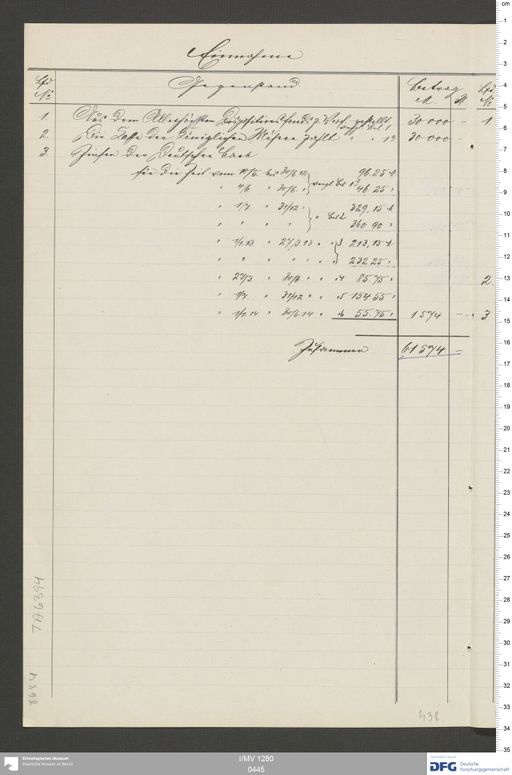 Einnahme
Lfd № Gegenstand Betrag Lfd
M ₰ №
1. Aus dem Allerhöchsten Dispositionsfonds z. Verf. gestellt 30 000 — 1.
vergl. Bel. 1
2. Die Kasse der Königlichen Museen zahlt " " 1a 30 000 —
3. Zinsen der Deutschen Bank
für die Zeit vom bis 30/6.12 96.25 M
" 4/6. " 30/6. " vergl. Bel. 46.25 "
" 1/7. " 31/12 " 329,15 M
" " " " " Bel. 2 360.90 "
" 1/1.13 " 27/3 13 " " 3 213,15 M
" " " " " " 232 25 "
" 27/3 " 30/6. " " 4 85.75 " 2.
" 1/7. " 31/12 " " 5 154 55 "
" 1/1.14 " 30/6.14 " " 6 55.75 " 1 574 — 3.
Zusammen 61 574 —
438
I/MV 1280
0445
Ethnologisches Museum
Staatliche Museen zu Berlin
Gefördert durch
DFG Deutsche
Forschungsgemeinschaft
cm
1
2
3
4
5
6
7
8
9
10
11
12
13
14
15
16
17
18
19
20
21
22
23
24
25
26
27
28
29
30
31
32
33
34
35